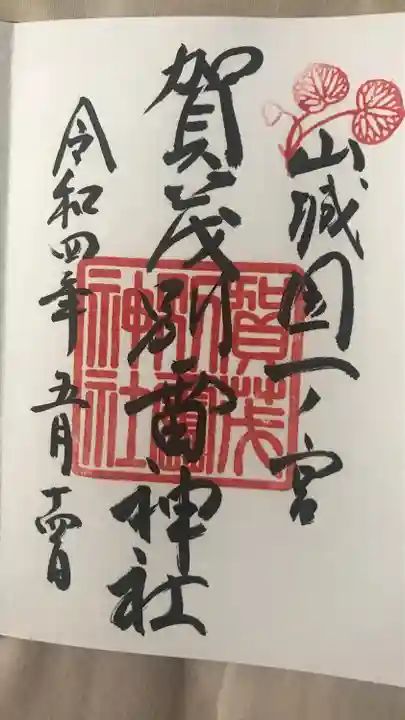 山城国一ノ宮
賀茂別雷神社
賀茂別雷神社
令和四年五月十四日